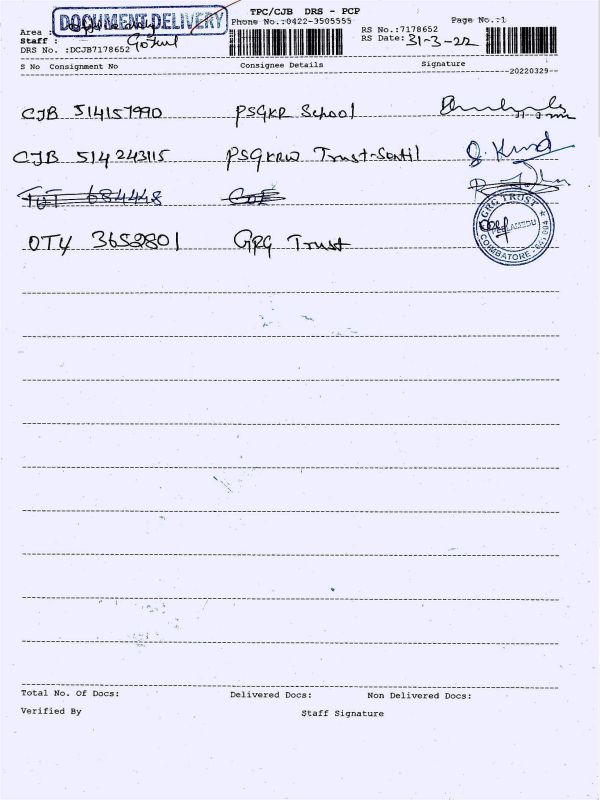 DOCUMENT DELIVERY
TPC/CJB DRS - PCP
Phone No.:0422-3505555
Page No.:1
Area :
Staff : Gokul
RS No.:7178652
RS Date: 31-3-22
DRS No. :DCJB7178652
S No Consignment No Consignee Details Signature
20220329
CJB 514157990 PSGKR School
CJB 514243115 PSGRKW Trust-Sentil
TUT 684448 COE
OTY 3659801 GRG Trust
GRG TRUST
PEELAMEDU
COIMBATORE - 641 004
Total No. Of Docs: Delivered Docs: Non Delivered Docs:
Verified By Staff Signature